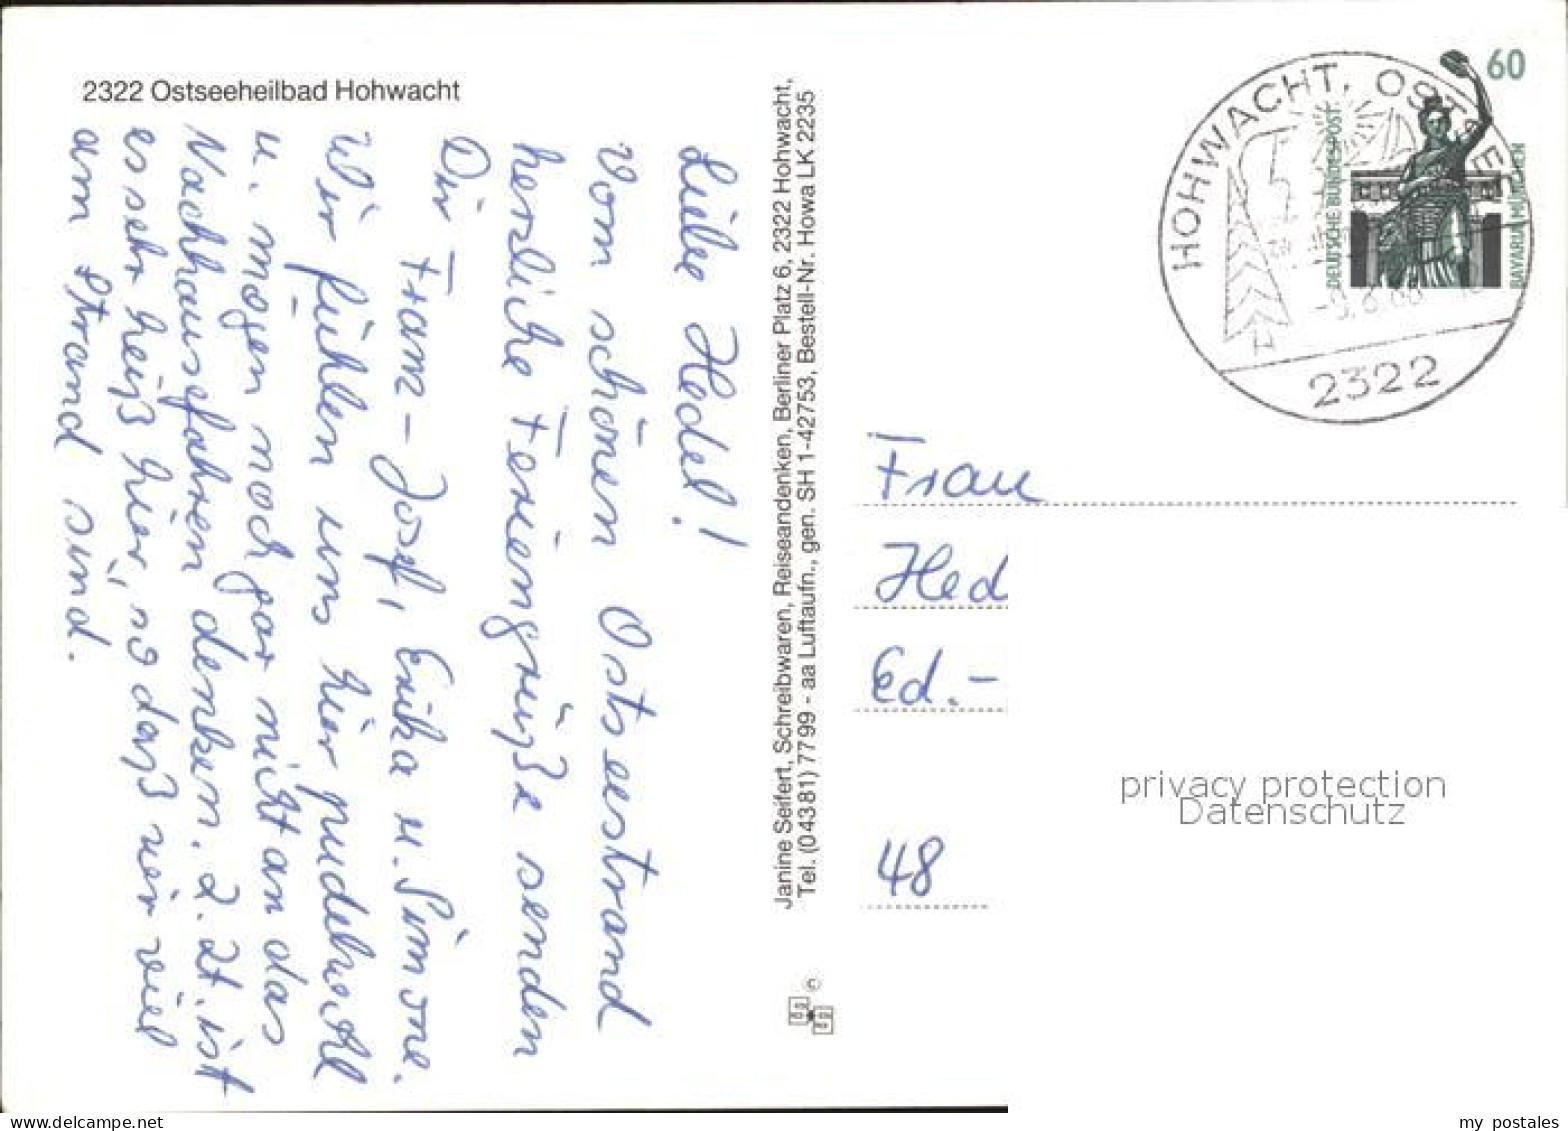 2322 Ostseeheilbad Hohwacht
Liebe Hedel!
Vom schönen Ostseestrand
herzliche Feriengrüße senden
Dir Franz-Josef, Erika u. Simone.
Wir fühlen uns hier pudelwohl
u. mögen noch gar nicht an das
Nachhausefahren denken. Z. Zt. ist
es sehr heiß hier, so daß wir viel
am Strand sind.
Janine Seifert, Schreibwaren, Reiseandenken, Berliner Platz 6, 2322 Hohwacht,
Tel. (04381) 7799 - aa Luftaufn., gen. SH 1-42753, Bestell-Nr. Howa LK 2235
©
60
DEUTSCHE BUNDESPOST
BAVARIA MÜNCHEN
HOHWACHT, OSTSEE
2322
Frau
Hed
Ed.-
48
privacy protection
Datenschutz
my postales